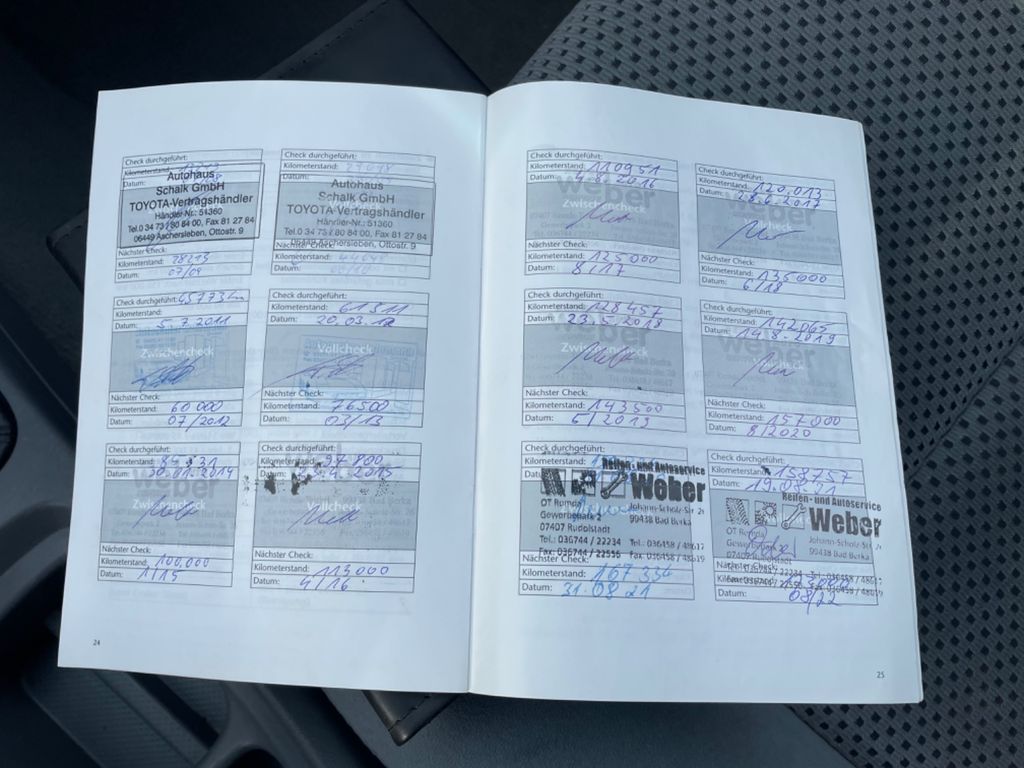 Check durchgeführt:
Kilometerstand:
Datum:
Autohaus
Schalk GmbH
TOYOTA-Vertragshändler
Händler-Nr.: 51360
Tel.0 34 73 / 80 84 00, Fax 81 27 84
06449 Aschersleben, Ottostr. 9
Nächster Check:
Kilometerstand: 28215
Datum: 07/09
Check durchgeführt:
Kilometerstand:
Autohaus
Schalk GmbH
TOYOTA-Vertragshändler
Händler-Nr.: 51360
Tel.0 34 73 / 80 84 00, Fax 81 27 84
06449 Aschersleben, Ottostr. 9
Nächster Check:
Kilometerstand:
Datum:
Check durchgeführt: 45773km
Kilometerstand:
Datum: 5.7.2011
Zwischencheck
Nächster Check:
Kilometerstand: 60 000
Datum: 07/2012
Check durchgeführt:
Kilometerstand: 61311
Datum: 20.03.12
Vollcheck
Nächster Check:
Kilometerstand: 76500
Datum: 03/13
Check durchgeführt:
Kilometerstand:
Datum:
Zwischencheck
Nächster Check:
Kilometerstand: 100.000
Datum: 1/15
Check durchgeführt:
Kilometerstand: 97 800
Datum:
Nächster Check:
Kilometerstand: 113000
Datum: 4/16
24
Check durchgeführt:
Kilometerstand: 110951
Datum: 4.8.2016
Weber
Zwischencheck
Nächster Check:
Kilometerstand: 125000
Datum: 8/17
Check durchgeführt:
Kilometerstand: 120.013
Datum: 28.6.2017
Nächster Check:
Kilometerstand: 135000
Datum: 6/18
Check durchgeführt:
Kilometerstand: 128457
Datum: 23.5.2018
Zwischencheck
Nächster Check:
Kilometerstand: 143500
Datum: 5/2019
Check durchgeführt:
Kilometerstand: 142065
Datum: 19.8.2019
Nächster Check:
Kilometerstand: 157000
Datum: 8/2020
Check durchgeführt:
Kilometerstand:
Reifen- und Autoservice
Weber
OT Romda
Gewerbepark 2
07407 Rudolstadt
Tel.: 036744 / 22234
Fax: 036744 / 22556
Johann-Scholz-Str
99438 Bad Berka
Nächster Check:
Kilometerstand: 167 334
Datum: 31.08.21
Check durchgeführt:
Kilometerstand: 158357
Datum: 19.08.21
Reifen- und Autoservice
Weber
OT Romda
Johann-Scholz-Str
99438 Bad Berka
Nächster Check:
Kilometerstand:
Datum: 08/22
25